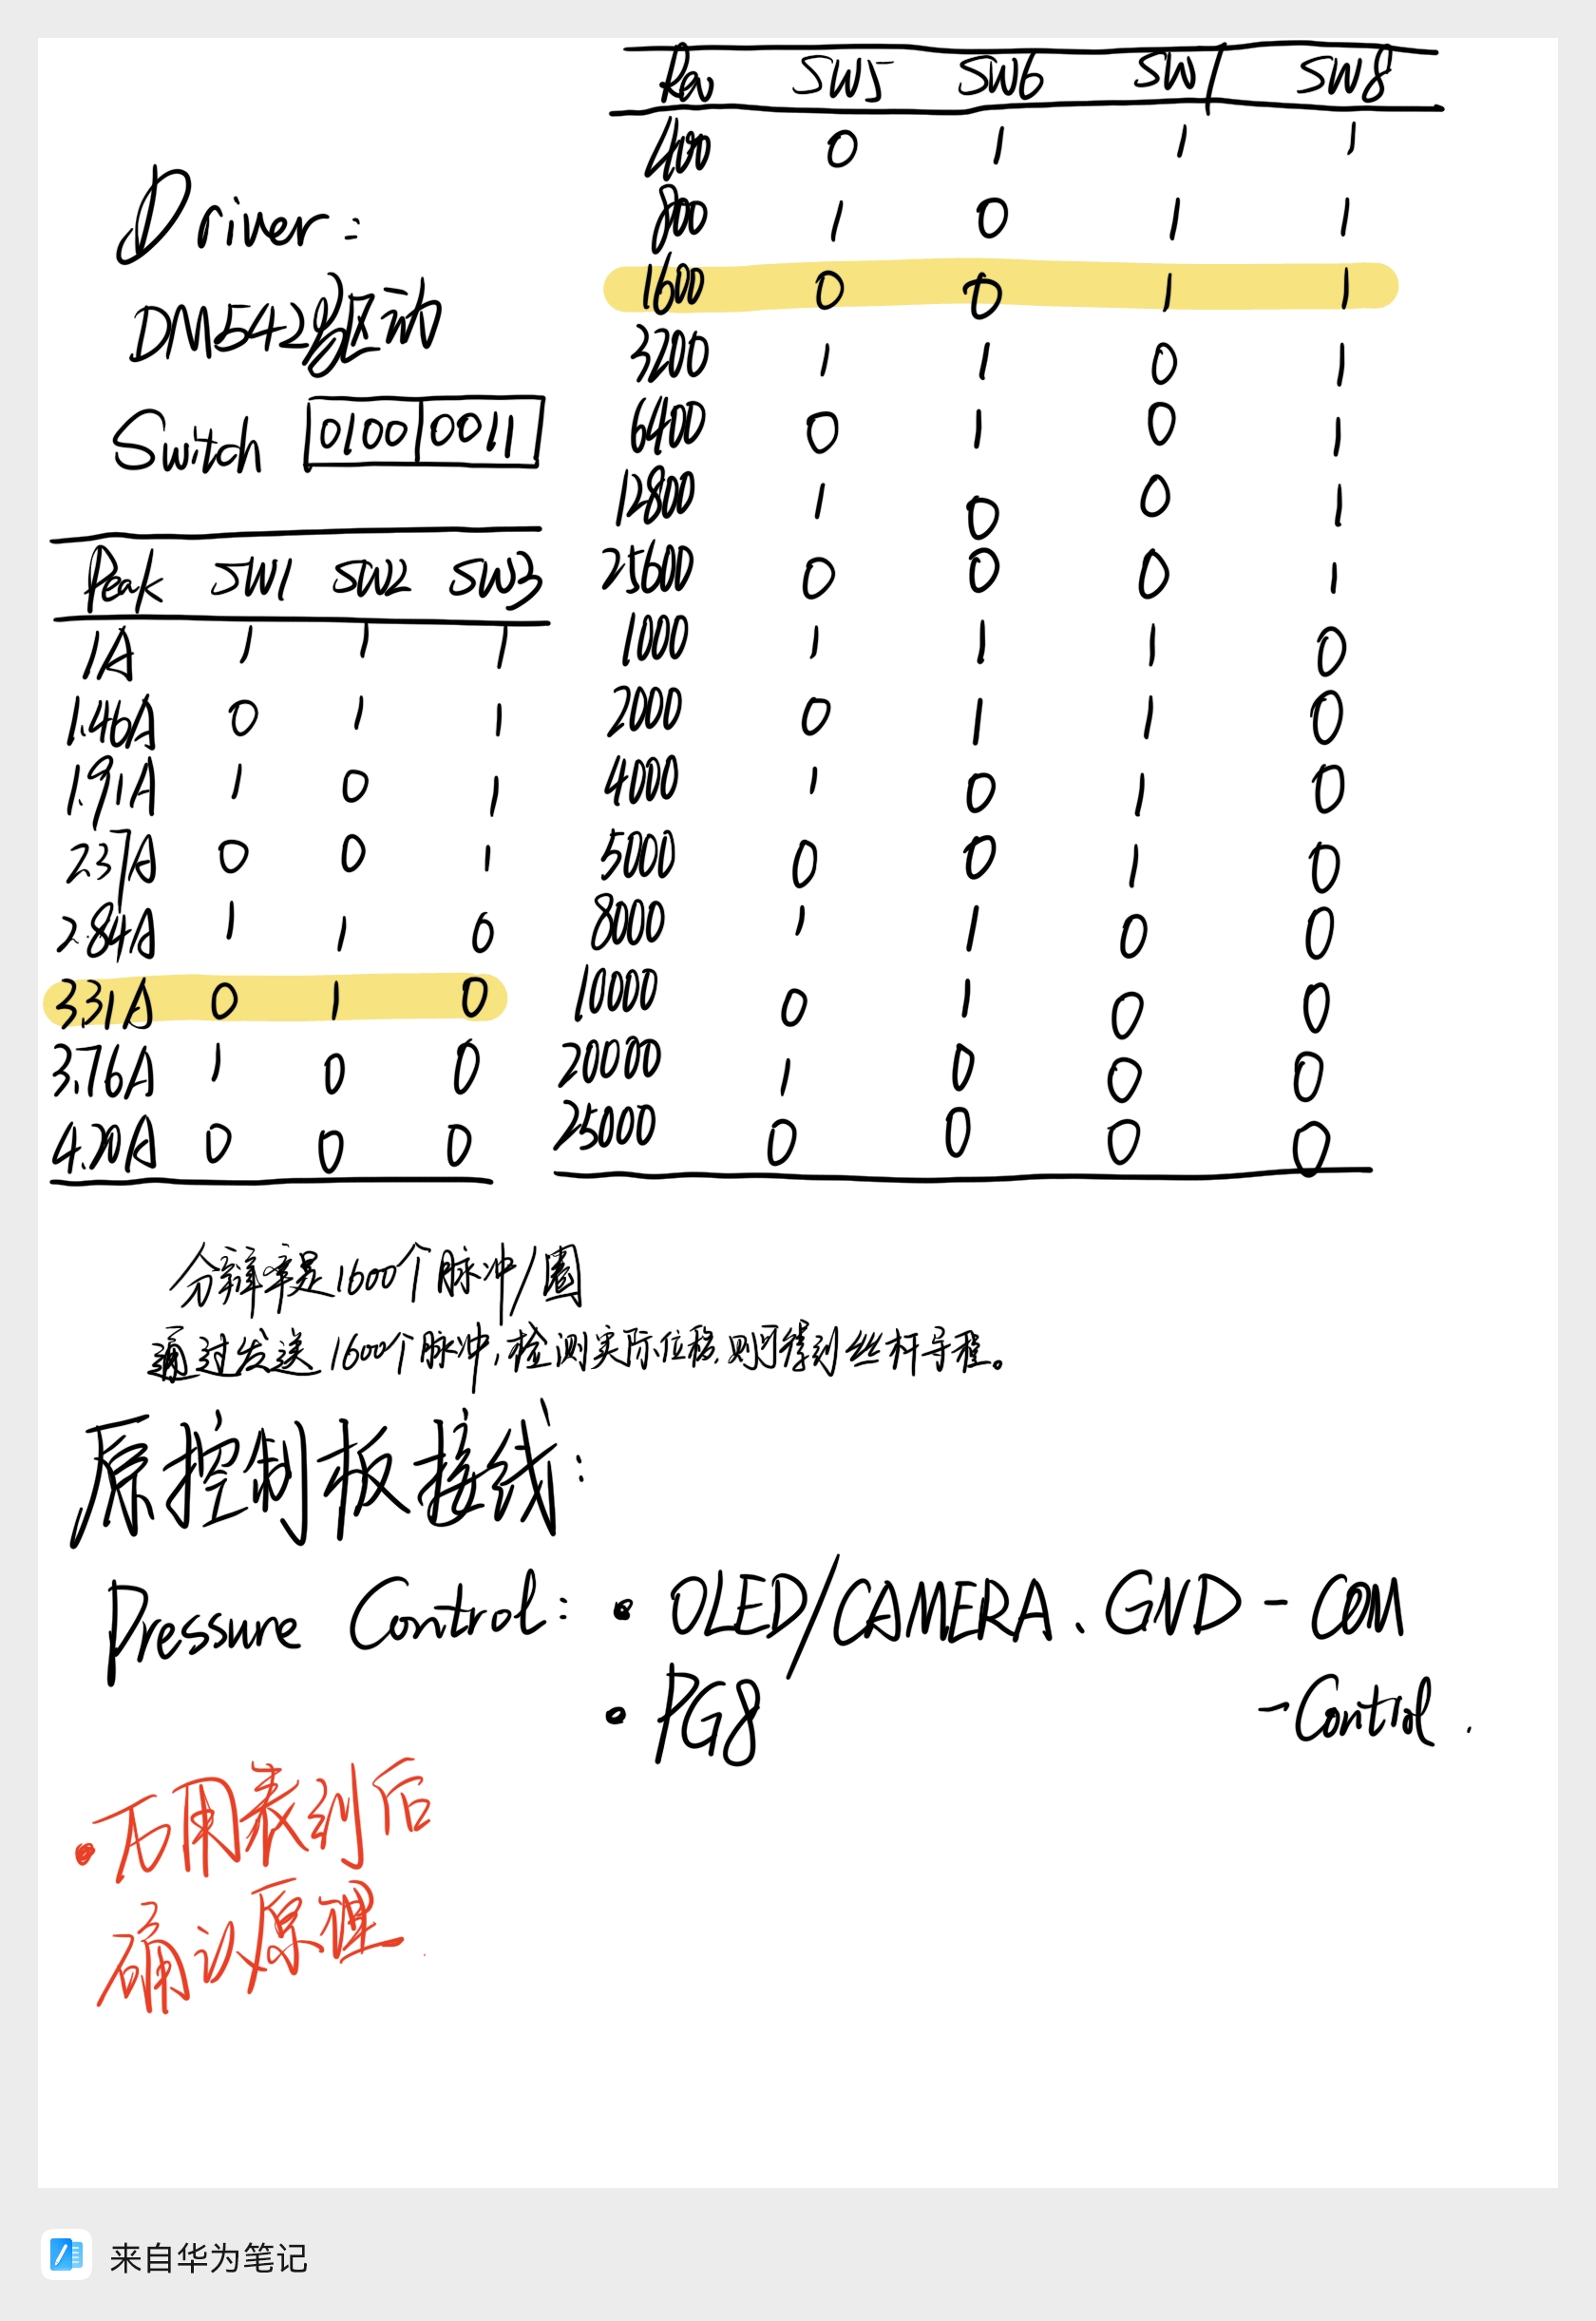 Driver:
DM542驱动
Switch 0100 0011
Peak SW1 SW2 SW3
1A 1 1 1
1.46A 0 1 1
1.91A 1 0 1
2.37A 0 0 1
2.84A 1 1 0
3.31A 0 1 0
3.76A 1 0 0
4.20A 0 0 0
Rev SW5 SW6 SW7 SW8
400 0 1 1 1
800 1 0 1 1
1600 0 0 1 1
3200 1 1 0 1
6400 0 1 0 1
12800 1 0 0 1
25600 0 0 0 1
1000 1 1 1 0
2000 0 1 1 0
4000 1 0 1 0
5000 0 0 1 0
8000 1 1 0 0
10000 0 1 0 0
20000 1 0 0 0
25000 0 0 0 0
分辨率是1600个脉冲/圈
通过发送1600个脉冲,检测实际位移,则可得到丝杆导程。
原控制板接线:
Pressure Control: • OLED/CAMERA、GND - COM
• PG8 - Control.
• 万用表到后
确认原理
来自华为笔记